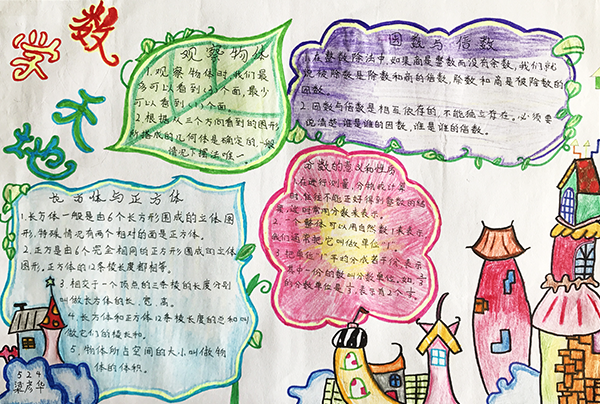 数学
天地
观察物体
1.观察物体时,我们最
多可以看到(3)个面,最少
可以看到(1)个面。
2.根据从三个方向看到的图形
所搭成的几何体是确定的,一般
情况下摆法唯一
因数与倍数
1.在整数除法中,如果商是整数而没有余数,我们就
说被除数是除数和商的倍数,除数和商是被除数的
因数。
2.因数与倍数是相互依存的,不能独立存在。必须要
说清楚谁是谁的因数,谁是谁的倍数。
长方体与正方体
1.长方体一般是由6个长方形围成的立体图
形,特殊情况有两个相对的面是正方体。
2.正方是由6个完全相同的正方形围成的立体
图形,正方体的12条棱长度都相等。
3.相交于一个顶点的三条棱的长度分别
叫做长方体的长、宽、高。
4.长方体和正方体12条棱长度的总和叫
做它们的棱长和。
5.物体所占空间的大小叫做物
体的体积。
分数的意义和性质
1.在进行测量、分物或计算
时,往往不能正好得到整数的结
果,这时常用分数来表示。
2.一个整体可以用自然数1来表示
我们通常把它叫做单位"1"
3.把单位"1"平均分成若干份,表示
其中一份的数叫分数单位。如,
的分数单位是
524
梁彦华